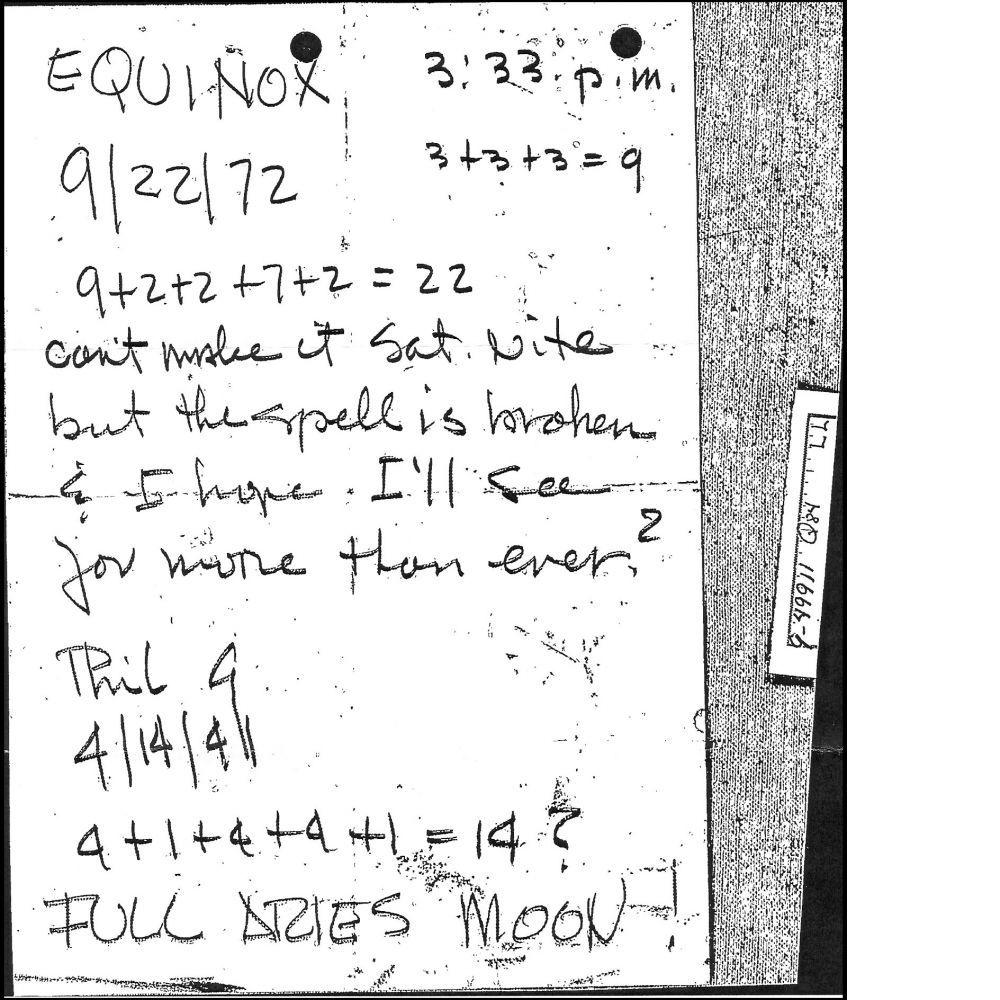 EQUINOX 3:33 p.m.
9/22/72 3+3+3=9
9+2+2+7+2 = 22
can't make it Sat. Nite
but the spell is broken
& I hope I'll see
you more than ever.
Phil G
4/14/41
4+1+4+4+1=14?
FULL ARIES MOON!